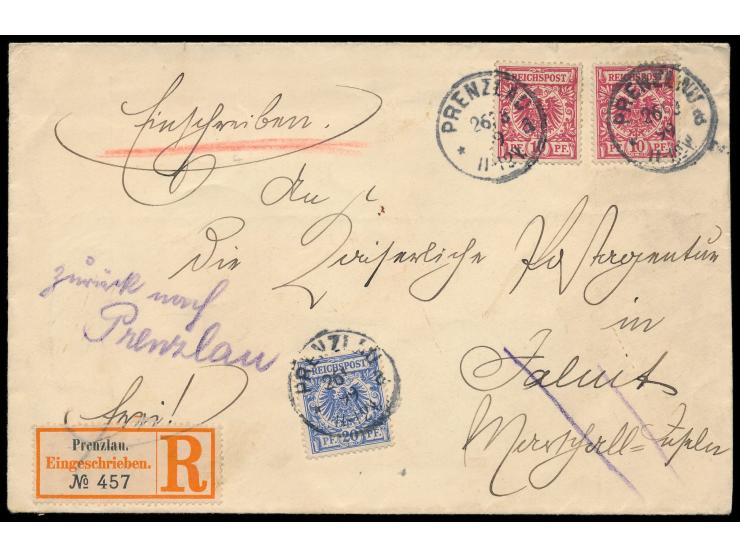 REICHSPOST REICHSPOST
10 PF. 10 PF.
PRENZLAU
26
11-12V
PRENZLAU
26
11-12V
Einschreiben.
An
die Kaiserliche Postagentur
in
Jaluit
Marschall=Inseln
zurück nach
Prenzlau
frei!
PRENZLAU
26
REICHSPOST
PF 20 PF
Prenzlau.
Eingeschrieben.
№ 457
R